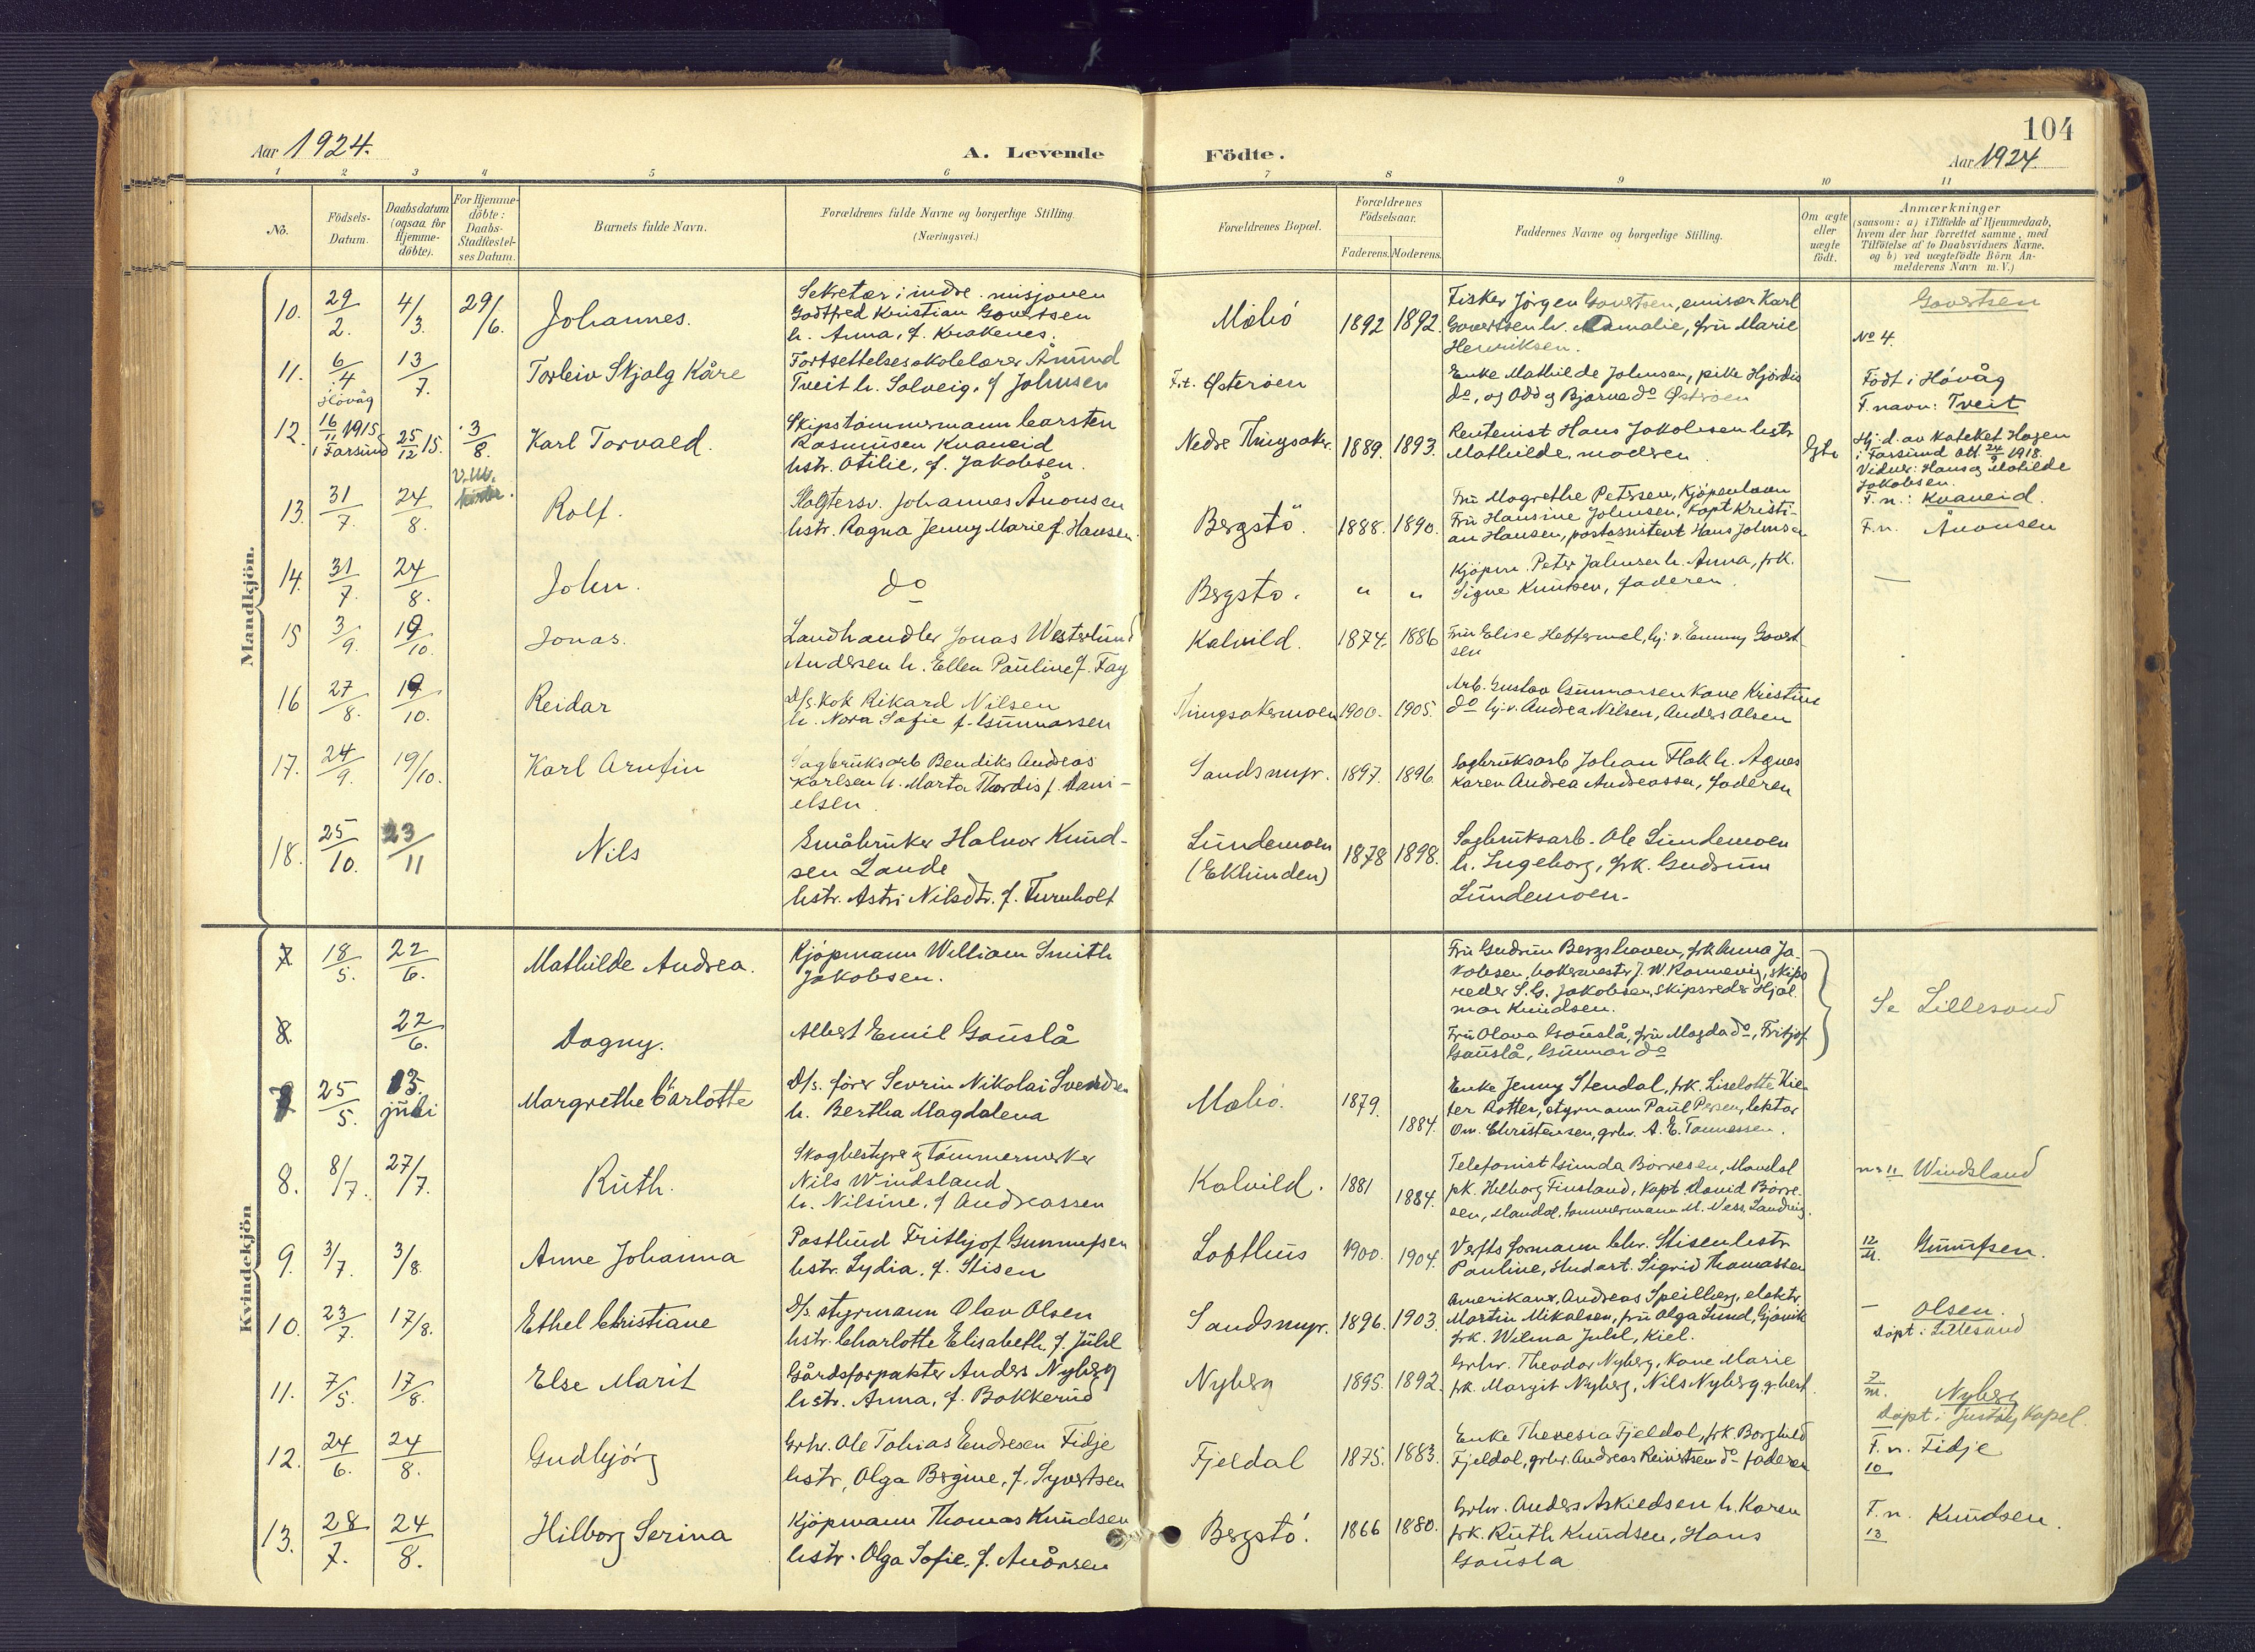 104
Aar 1924.
A. Levende
Födte.
Aar 1924
1 2 3 4 5 6 7 8 9 10 11
No.
Födsels-
Datum.
Daabsdatum
(ogsaa for
Hjemme-
döbte).
For Hjemme-
döbte:
Daabs-
Stadfestel-
ses Datum.
Barnets fulde Navn.
Forældrenes fulde Navne og borgerlige Stilling.
(Næringsvei.)
Forældrenes Bopæl.
Forældrenes
Födselsaar.
Faderens. Moderens.
Faddernes Navne og borgerlige Stilling.
Om ægte
eller
uægte
födt.
Anmærkninger
(saasom: a) i Tilfælde af Hjemmedaab,
hvem der har forrettet samme, med
Tilföielse af to Daabsvidners Navne,
og b) ved uægtefödte Börn An-
melderens Navn m. V.)
Mandkjön.
10. 29/2. 4/3. 29/6. Johannes.
Sekretær i indre misjonen
Godtfred Kristian Govertsen
h. Anna, f. Krakenes.
1892 1892.
Fisker Jörgen Govertsen, emisær Karl
Govertsen h. Amalie, frü Marie
Henriksen.
Govertsen
No 4.
11. 6/4 i Hövåg 13/7. Torleiv Skjalg Kåre
Fortsettelsesskolelærer Åmund
Tveit h. Solveig, f Johnsen
F.t. Østeröen
Enke Mathilde Johnsen, pike Hjördis
do, og Odd og Bjarne do Østeröen
Födt i Hövåg
F. navn: Tveit
12. 16/11 1915 i Farsund 25/12 15. 3/8. Karl Torvald.
Skipstömmermann Carsten
Rasmusen Kvaneid
hstr. Otilie, f. Jakobsen.
Nedre Tingsaker. 1889. 1893.
Rentenist Hans Jakobsen hstr
Mathilde, moderen
Hj. d. av kateket Hagen
i Farsund att 24/9 1918.
Vidner: Hans og Matilde
Jakobsen.
F. n.: Kvaneid.
13. 31/7. 24/8. Rolf.
Johannes Ånonsen
hstr. Ragna Jenny Marie f. Hansen.
Bergstö. 1888. 1890.
Frü Magrethe Petersen, Kjöpenhavn
Frü Hansine Johnsen, Kapt Kristi-
an Hansen, postassistent Hans Johnsen
F. n. Ånonsen
14. 31/7. 24/8. John.
do
Bergstö. " "
Kjöpm. Peter Johnsen h. Anna, frk.
Signe Knutsen, faderen.
—
15 3/9. 19/10. Jonas.
Landhandler Jonas Westerlund
Andersen h. Ellen Pauline f. Fay
Kalvild. 1874. 1886
Frü Elise Heffermel, hj. v. Emmy Govert-
sen
16 27/8. 19/10. Reidar
D/s. Kok Rikard Nilsen
h. Nora Sofie f. Gunnarsen
Tingsakermoen 1900. 1905.
Arb. Gustav Gunnarsen Kone Kristine
do hj. v. Andrea Nilsen, Anders Olsen
17. 24/9. 19/10. Karl Arnfin
Sagbruksarb Bendiks Andreas
Karlsen h. Marta Thordis f. Dani-
elsen.
Sandsmyr. 1897. 1896
Sagbruksarb Johan Flak h. Agnes
Karen Andrea Andreassen, faderen
18. 25/10. 23/11 Nils
Småbruker Halvor Knud-
sen Lande
hstr. Astri Nilsdtr. f. Furuholt
Lundemoen
(Eklunden) 1878 1898.
Sagbruksarb. Ole Lundemoen
h. Ingeborg, frk. Gudrun
Lundemoen.
Kvindekjön
7 18/5. 22/6. Mathilde Andrea.
Kjöpmann William Smith
Jakobsen.
Frü Gudrun Bergshaven, frk Anna Ja-
kobsen, bokermester J. W. Ronnevig, skips
reder S. G. Jakobsen, skipsreder Hjal
mar Knudsen.
Se Lillesand
8. 22/6. Dagny.
Albert Emil Gauslå
Frü Olava Gauslå, frü Magda do, Fritjof
Gauslå, Gunnar do
7 25/5. 13. juli Margrethe Carlotte
D/s. förer Sevrin Nikolai Svendsen
h. Bertha Magdalena
1879. 1884.
Enke Jenny Stendal, frk. Liselotte Kie-
fer Rotter, styrmann Paul Persen, lektor
Om. Christensen, grhr. A. E. Tönnessen.
8. 8/7. 27/7. Ruth.
Skogbestyrer og tömmermerker
Nils Windsland
h. Nilsine, f Andreassen
Kalvild. 1881 1884.
Telefonist Gunda Börresen, Mandal
pk. Helborg Finsland, Kapt. David Börre-
sen, Mandal, tömmermann M. Ness, Landvig.
nr 11 Windsland
9. 3/7. 3/8. Anne Johanna
Postbud Frithjof Gunnufsen
hstr. Lydia, f. Stisen
Lofthus 1900. 1904.
Verftsformann Chr. Stisen hstr
Pauline, Student. Sigrid Thomassen
12/M. Gunnufsen.
10. 23/7. 17/8. Ethel Christiane
D/s. styrmann Olav Olsen
hstr. Charlotte Elisabeth, f. Juhl
Sandsmyr. 1896. 1903.
Amerikaner, Andreas Speilberg, elektr.
Martin Mikalsen, frü Olga Lund, Gjövik
frk. Wilma Juhl, Kiel.
— Olsen.
Döpt i Lillesand
11. 7/5. 17/8. Else Marit
Gårdsforpakter Anders Nyberg
hstr. Anna, f. Bakkerud
Nyberg 1895. 1892.
Grhr. Theodor Nyberg, Kone Marie
frk. Margit Nyberg, Nils Nyberg, g.best.
7/M. Nyberg
Döpt i Justöy Kapel.
12. 24/6. 24/8. Gudbjörg
Grhr. Ole Tobias Endresen Fidje
hstr, Olga Bergine, f. Syvertsen
Fjeldal 1875. 1883.
Enke Theresia Fjeldal, frk. Borghild
Fjeldal, grhr. Andreas Reinertsen do faderen
F. n. Fidje
10
13. 28/7. 24/8. Hilborg Serina
Kjöpmann Thomas Knudsen
hstr. Olga Sofie, f. Anånsen
Bergstö. 1866 1880.
Grhr. Anders Askiedsen h. Karen
frk. Ruth Knudsen, Hans
Gausla
F. n. Knudsen.
13